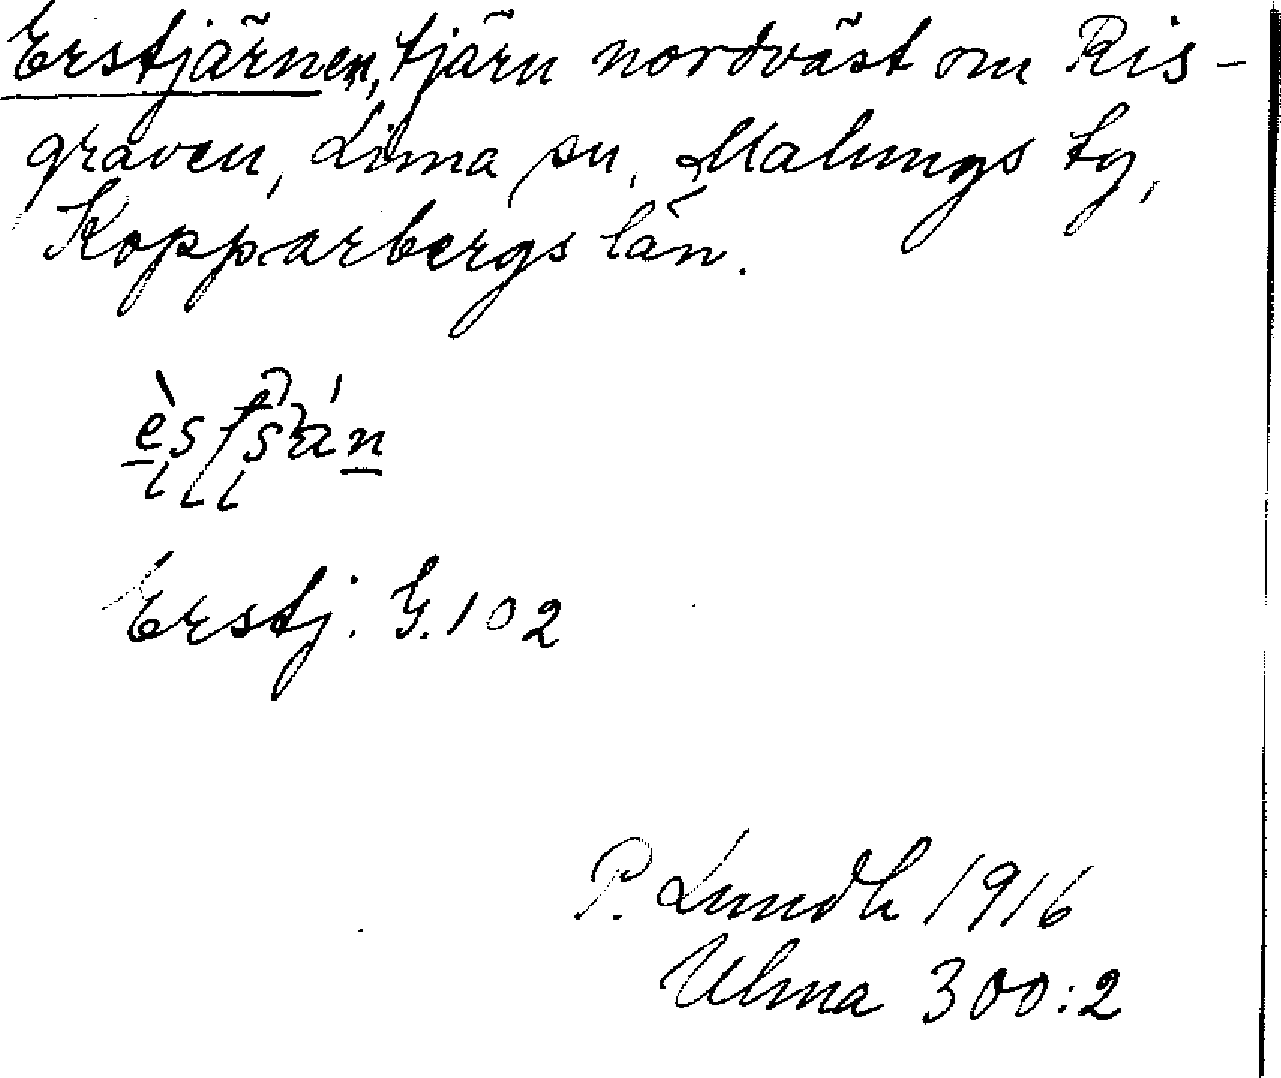 Erstjärnen, tjärn nordväst om Ris-
graven, Lima sn, Malungs tg,
Kopparbergs län.
Erstj. G. 102
P. Lundh 1916
Ulma 300:2